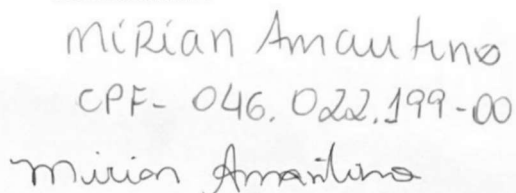 Mirian Amantino
CPF- 046.022.199-00
Mirian Amantino